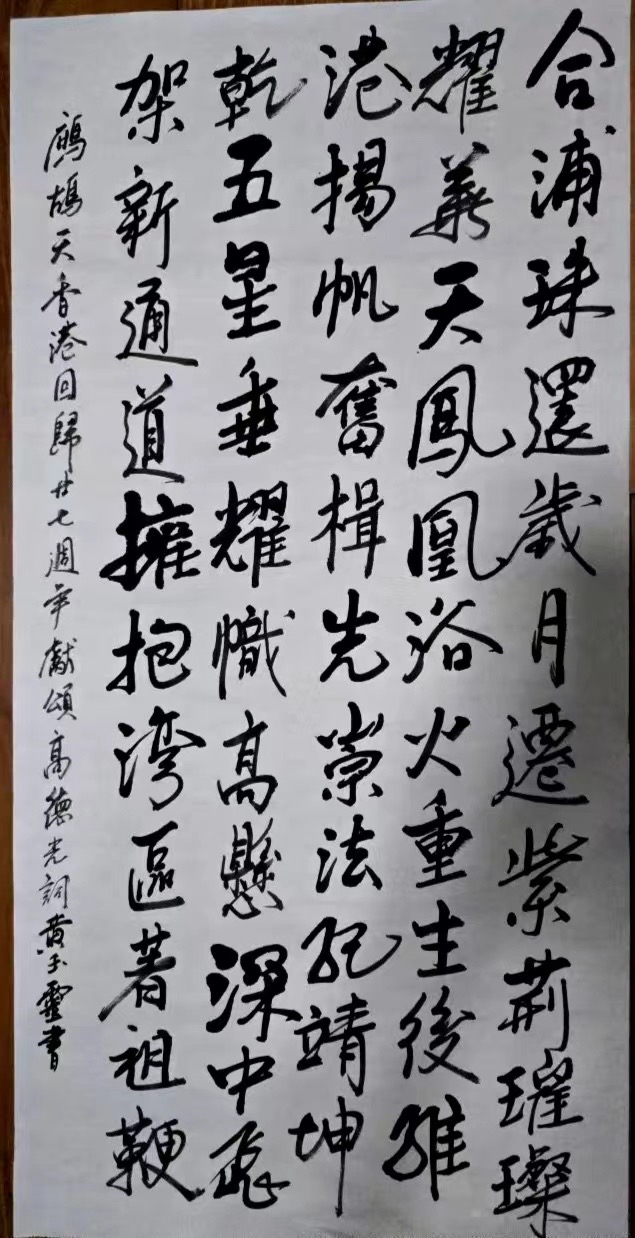 合浦珠還歲月遷紫荊璀璨
耀華天鳳凰浴火重生後維
港揚帆奮楫先崇法紀靖坤
乾五星垂耀幟高懸深中飛
架新通道擁抱灣區著祖鞭
鷓鴣天香港回歸廿七週年獻頌高德光詞黃玉靈書